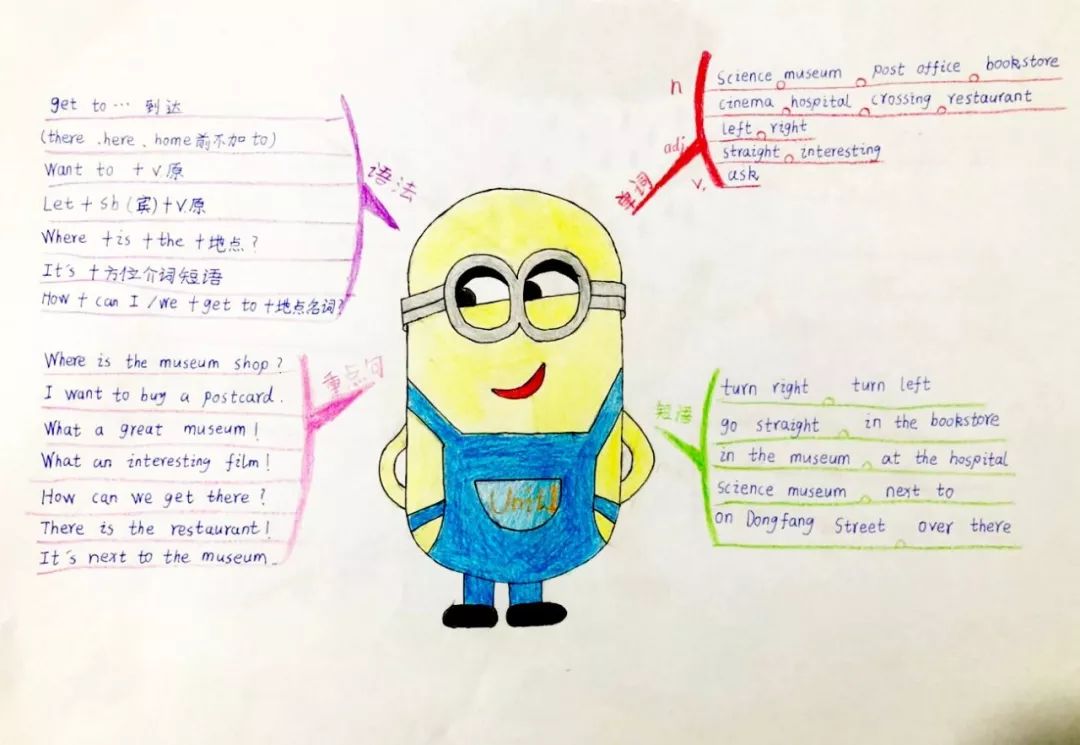 语法
get to … 到达
(there 、here 、home前不加 to)
Want to + v.原
Let + sb (宾)+v.原
Where +is +the +地点?
It's +方位介词短语
How + can I /we +get to +地点名词?
重点句
Where is the museum shop?
I want to buy a postcard.
What a great museum!
What an interesting film!
How can we get there?
There is the restaurant!
It's next to the museum.
Unit1
单词
n
Science museum 。 post office 。 bookstore
cinema 。hospital 。crossing 。restaurant
adj
left 。right
straight 。interesting
v.
ask
短语
turn right 。 turn left
go straight 。 in the bookstore
in the museum 。 at the hospital
Science museum 。 next to
on Dongfang Street 。 over there